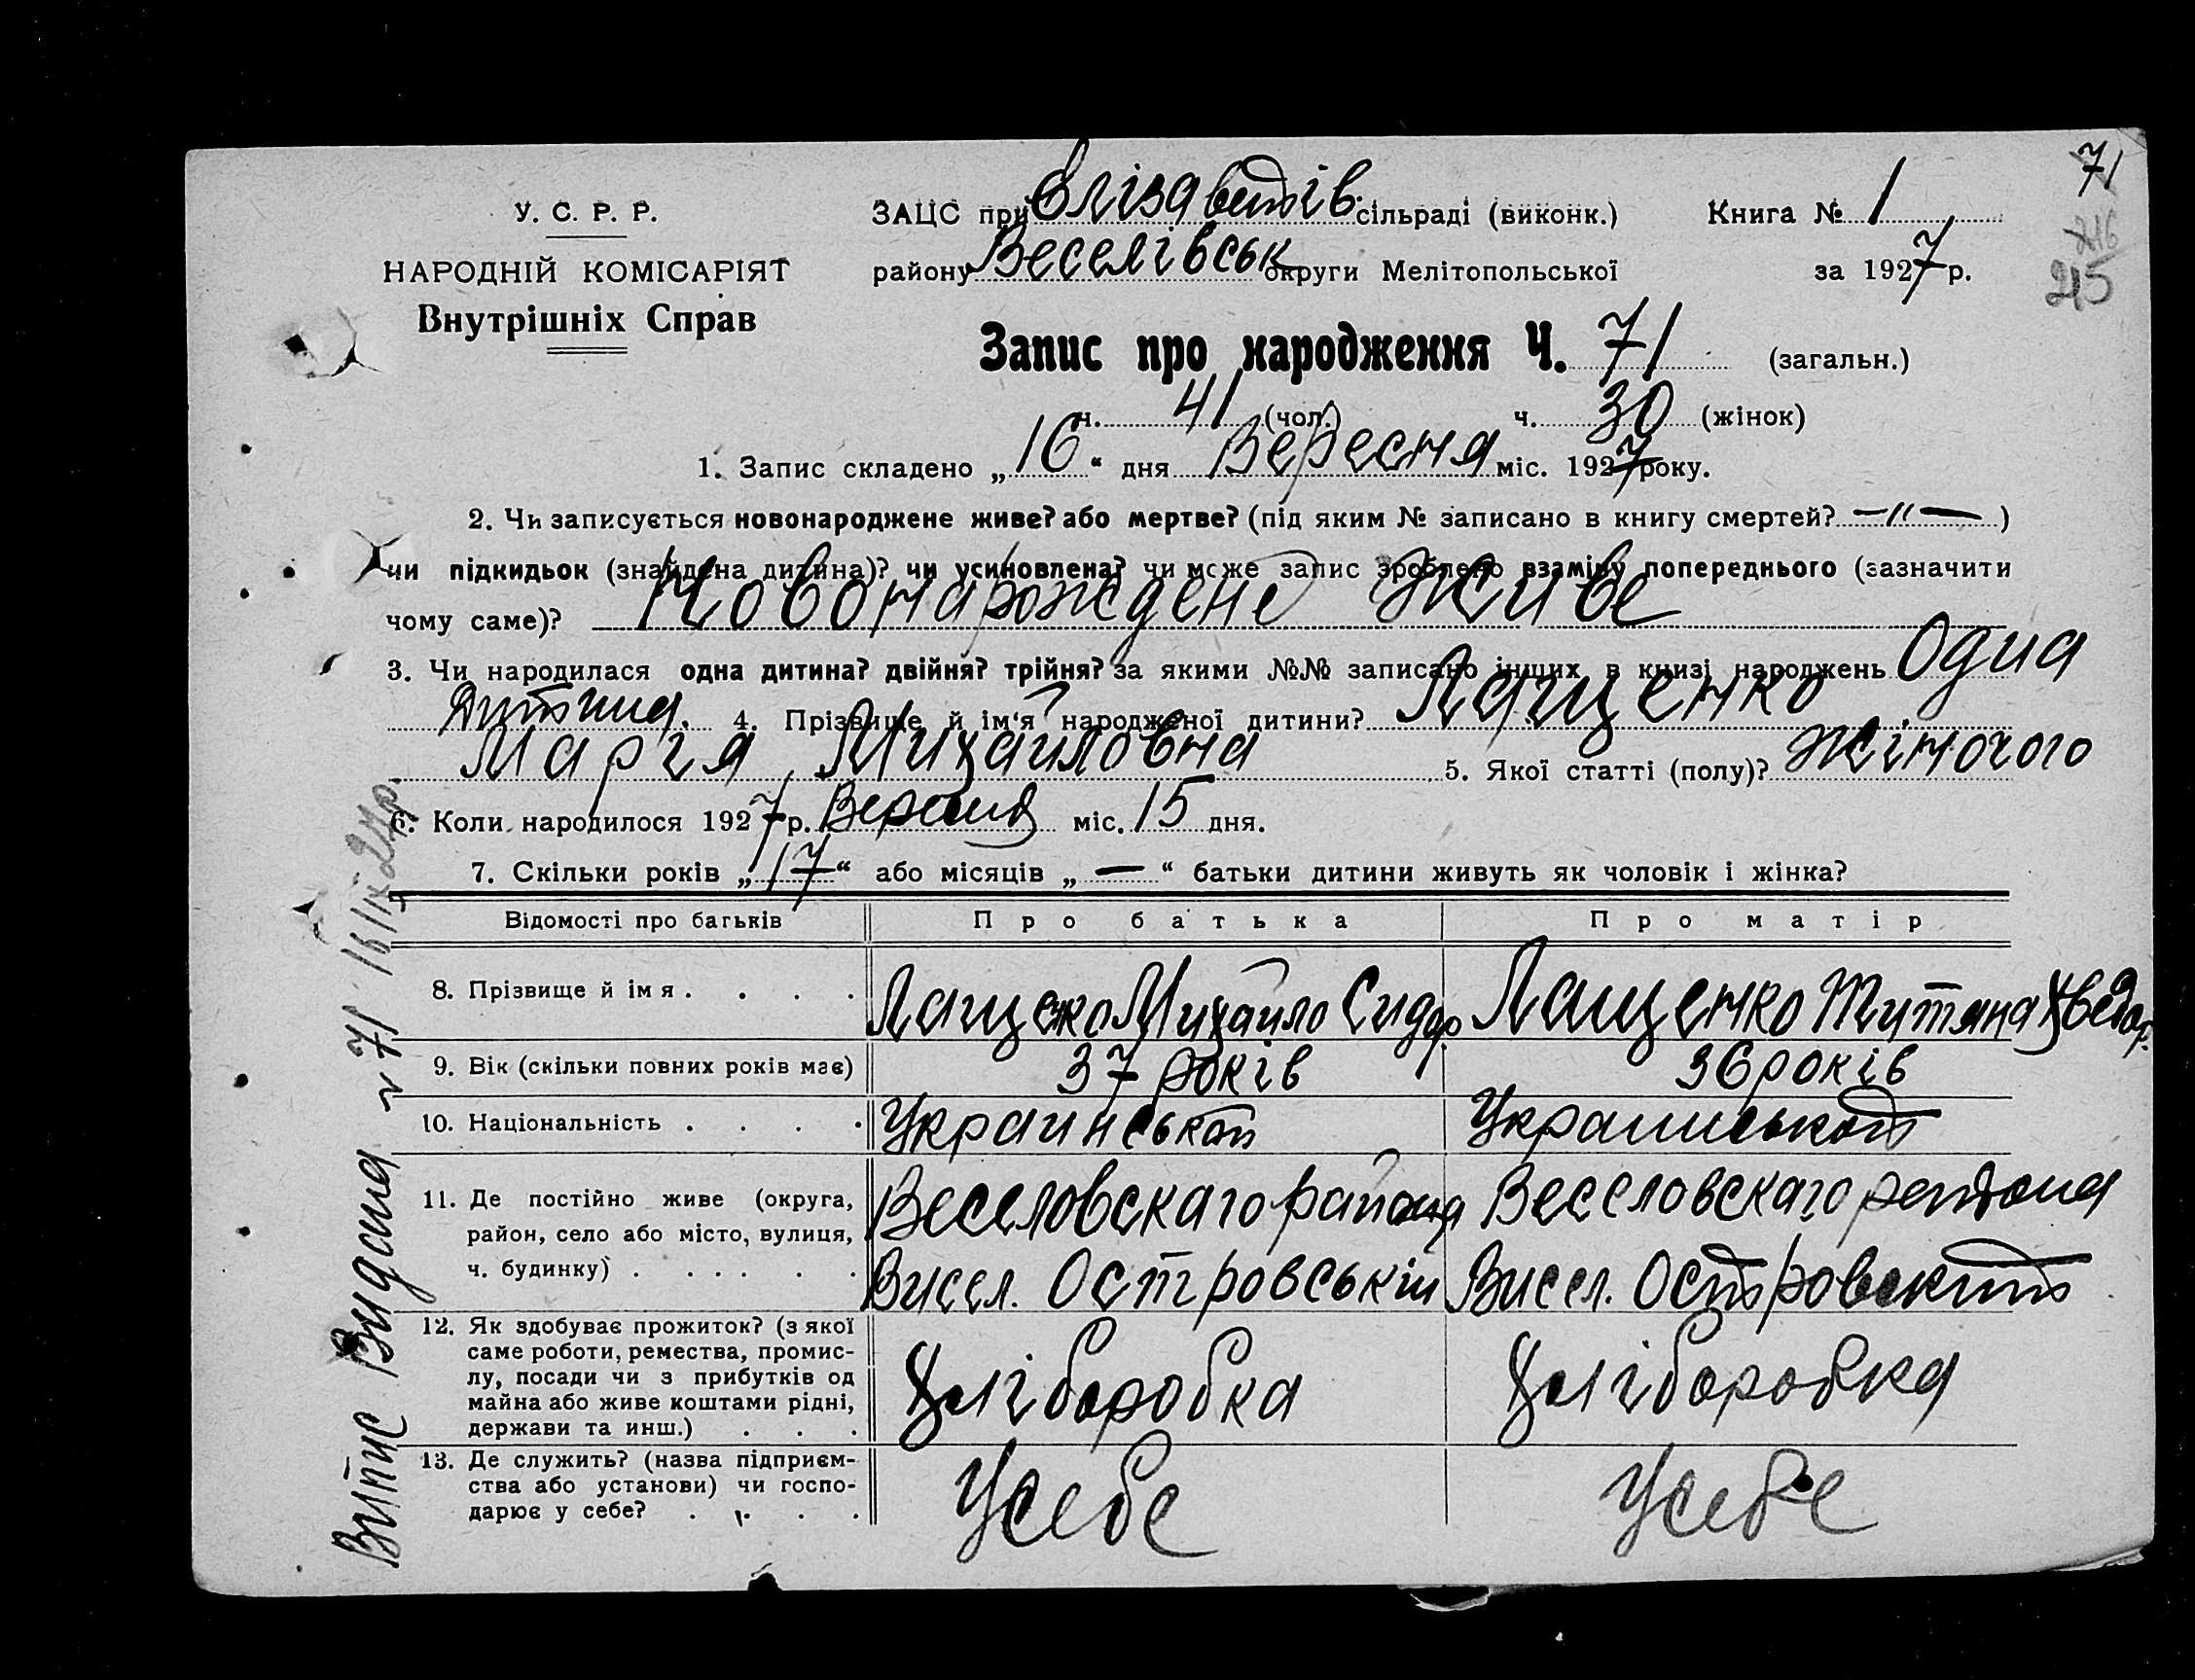 71
У. С. Р. Р.
ЗАЦС при Єлізаветів. сільраді (виконк.) Книга № 1
216
215
НАРОДНІЙ КОМІСАРІЯТ
району Веселівськ округи Мелітопольської за 1927 р.
Внутрішніх Справ
Запис про народження Ч. 71 (загальн.)
ч. 41 (чол.) ч. 30 (жінок)
1. Запис складено „16“ дня Вересня міс. 1927 року.
2. Чи записується новонароджене живе? або мертве? (під яким № записано в книгу смертей? —„— )
чи підкидьок (знайдена дитина)? чи усиновлена? чи може запис зроблено взаміну попереднього (зазначити
чому саме)? Новонарождене живе
3. Чи народилася одна дитина? двійня? трійня? за якими №№ записано інших в книзі народжень Одна
дитина. 4. Прізвище й ім‘я народженої дитини? Лащенко
Марія Михайловна 5. Якої статті (полу)? жіночого
6. Коли народилося 1927 р. Вересня міс. 15 дня.
7. Скільки років „17“ або місяців „—“ батьки дитини живуть як чоловік і жінка?
Відомості про батьків Про батька Про матір
8. Прізвище й ім я . . . . Лащенко Михайло Сидор. Лащенко Титяна Хведор.
9. Вік (скільки повних років має) 37 років 36 років
10. Національність . . . . Украинськой Украинськой
11. Де постійно живе (округа,
район, село або місто, вулиця,
ч. будинку) . . . . . .
Веселовскаго района Веселовскаго района
Висел. Островський Висел. Островский
12. Як здобуває прожиток? (з якої
саме роботи, ремества, промис-
лу, посади чи з прибутків од
майна або живе коштами рідні,
держави та инш.) . . .
Хліборобка Хліборобка
13. Де служить? (назва підприєм-
ства або установи) чи госпо-
дарює у себе? . . . .
У себе У себе
Випис Видана № 71 16/IX 27р.